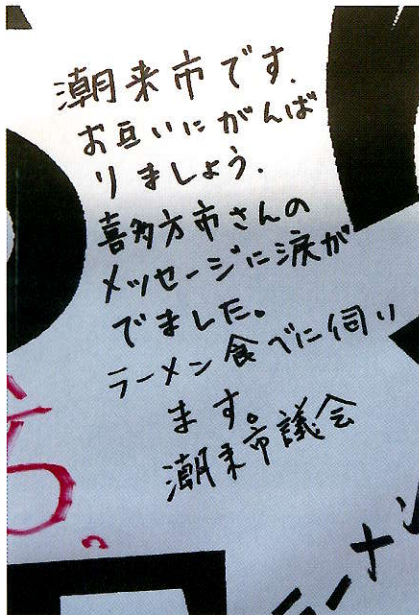 潮来市です.
お互いにがんば
りましょう.
喜多方市さんの
メッセージに涙が
でました。
ラーメン食べに伺い
ます。
潮来市議会
ラーメン